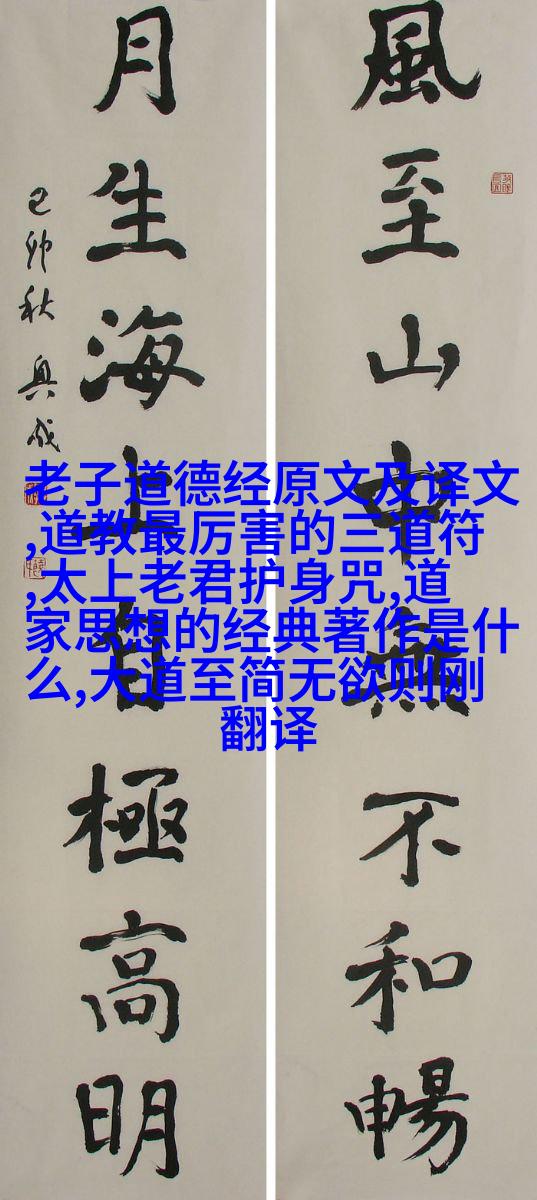 風至山中無不和暢
月生海上極高明
己卯秋
老子道德经原文及译文
,道教最厉害的三道符
,太上老君护身咒,道
家思想的经典著作是什
么,大道至简无欲则刚
翻译